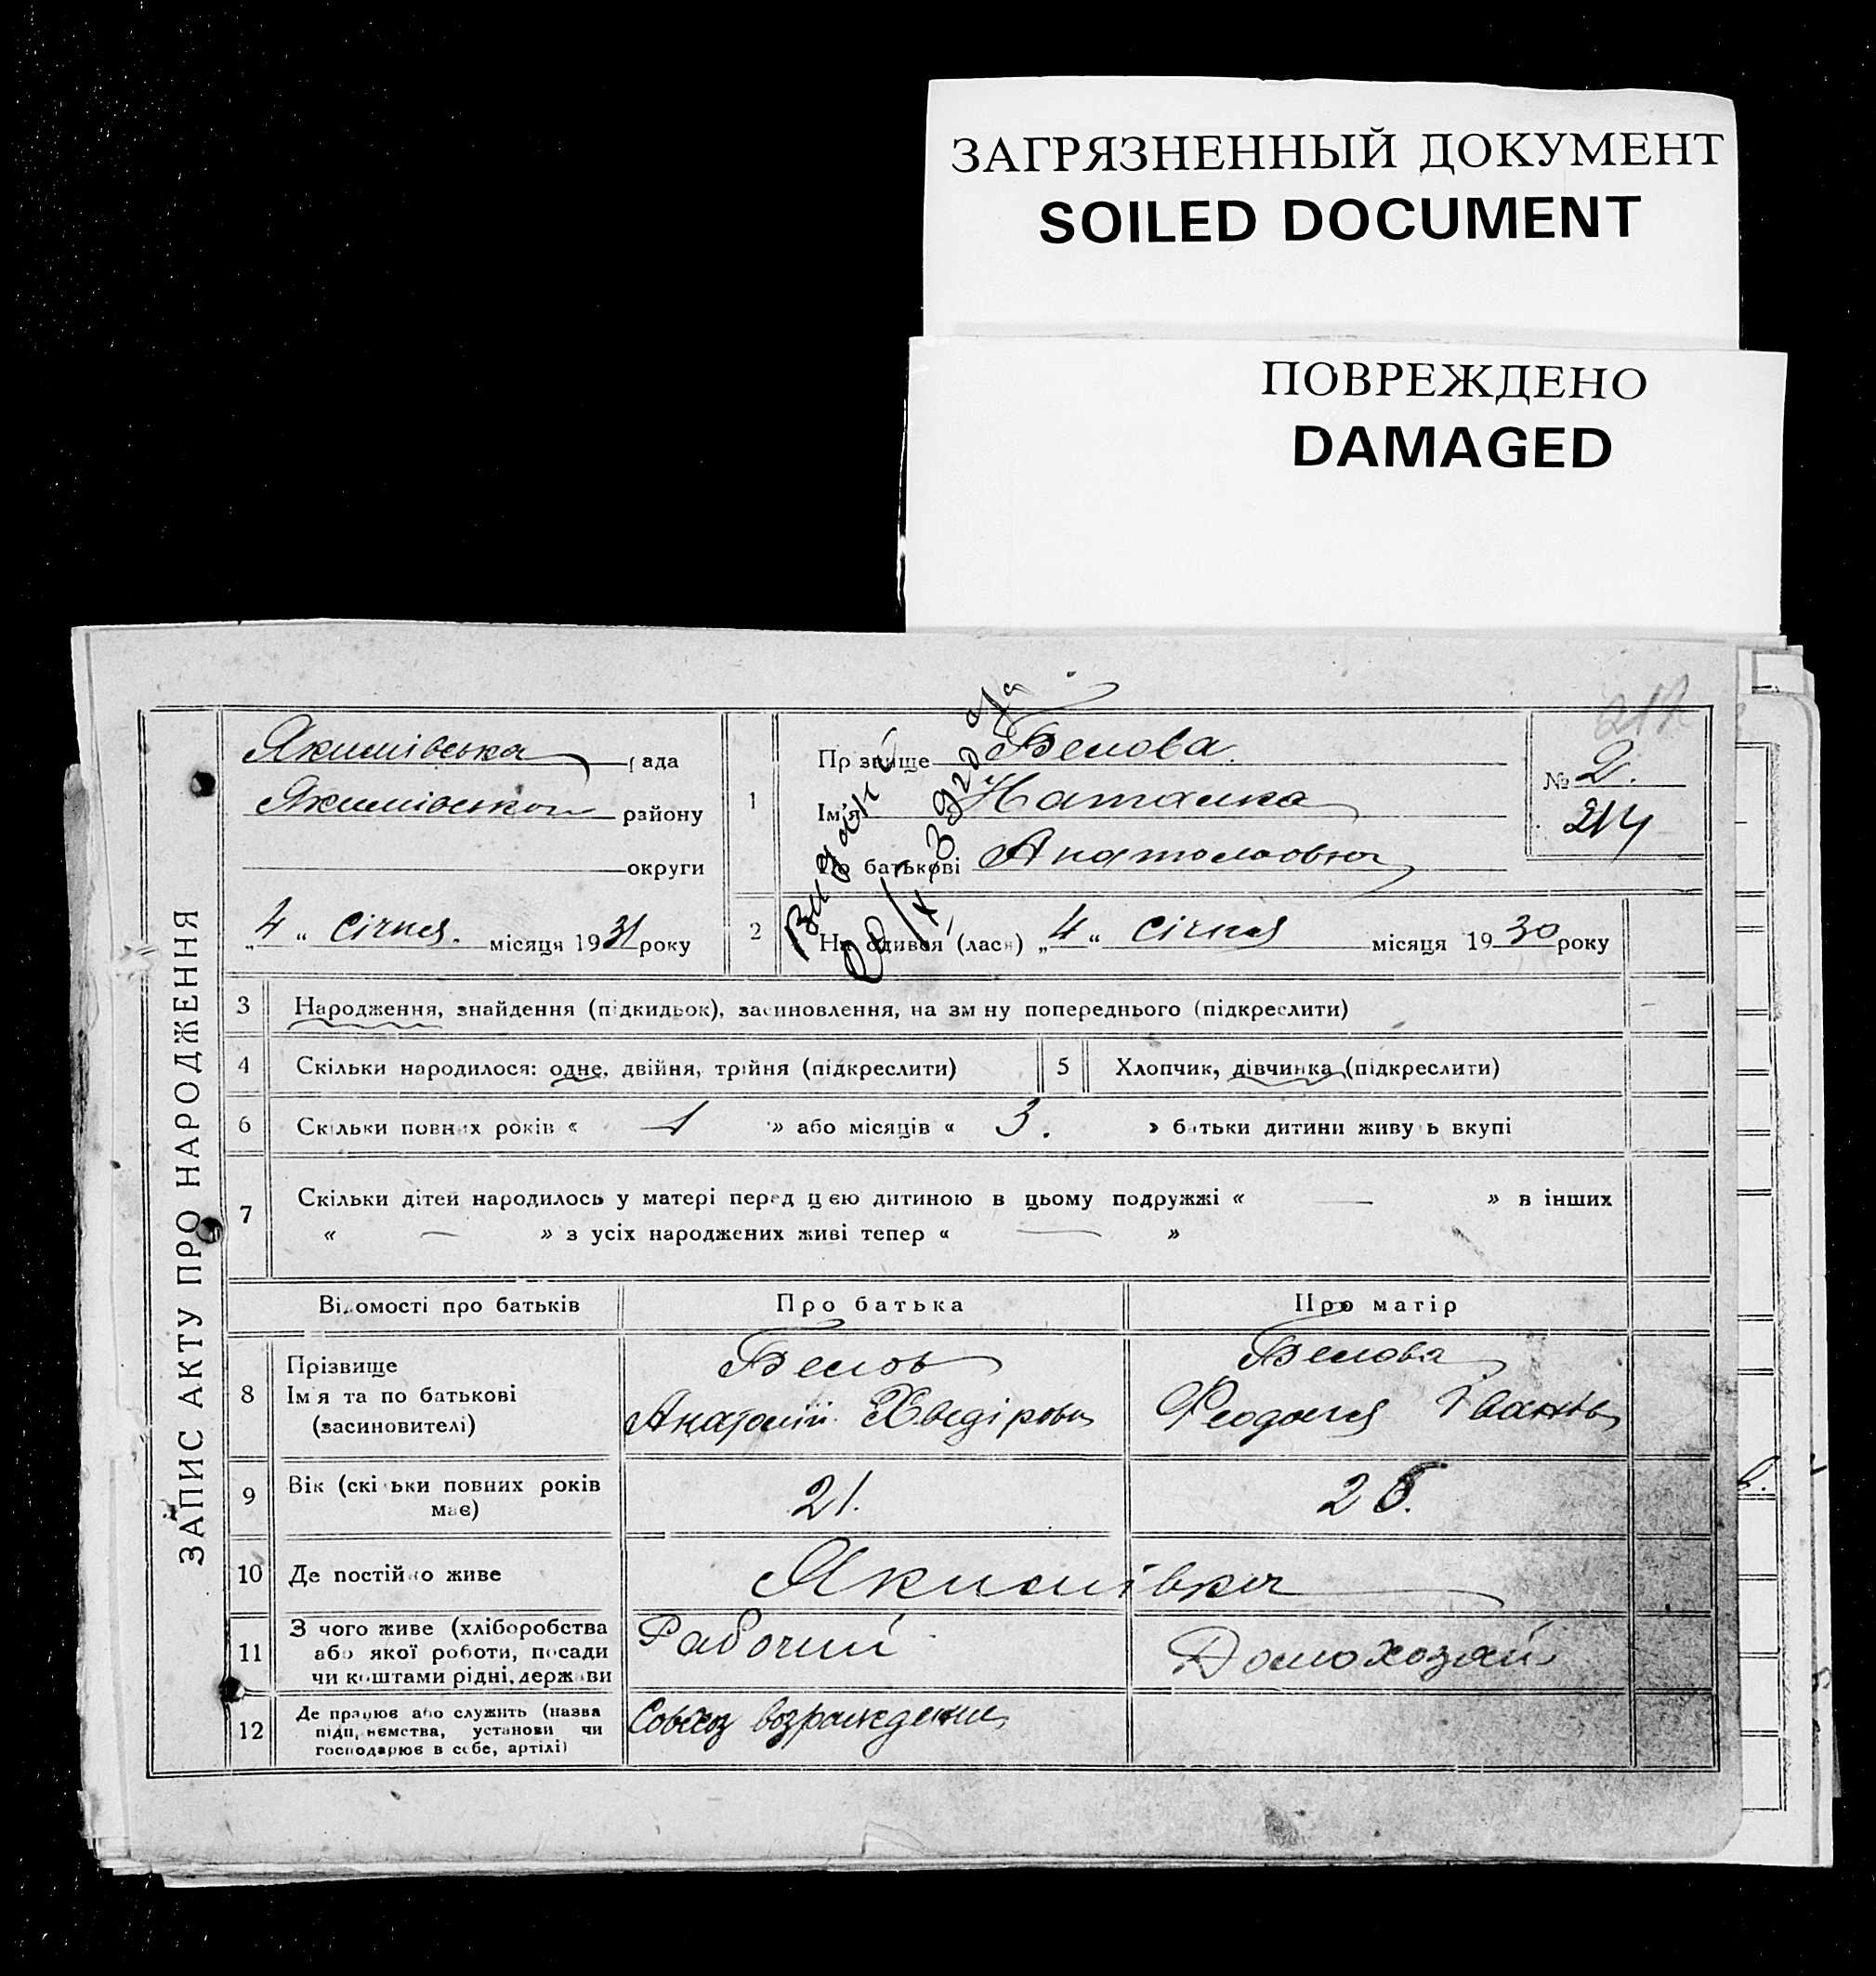 ЗАГРЯЗНЕННЫЙ ДОКУМЕНТ
SOILED DOCUMENT
ПОВРЕЖДЕНО
DAMAGED
ЗАПИС АКТУ ПРО НАРОДЖЕННЯ
Якимівська рада
Якимівського району
округи
„4“ січня. місяця 1931 року
1
Прізвище Белова.
Ім'я Наталка
По батькові Анатоліовна
№ 2.
214
2 Народився (лася) „4“ січня місяця 1930 року
3 Народження, знайдення (підкидьок), засиновлення, на зміну попереднього (підкреслити)
4 Скільки народилося: одне, двійня, трійня (підкреслити)
5 Хлопчик, дівчинка (підкреслити)
6 Скільки повних років « 1 » або місяців « 3. » батьки дитини живуть вкупі
7 Скільки дітей народилось у матері перед цією дитиною в цьому подружжі « — » в інших
« — » з усіх народжених живі тепер « — »
Відомості про батьків Про батька Про матір
8 Прізвище
Ім'я та по батькові
(засиновителі)
Белов
Анатолій Хведірови
Белова
Феодосія Іванівн
9 Вік (скільки повних років
має)
21.
26.
10 Де постійно живе Якимівка
11 З чого живе (хліборобства
або якої роботи, посади
чи коштами рідні, держави
Рабочий
Домохозяй
12 Де працює або служить (назва
підприємства, установи чи
господарює в себе, артілі)
Совхоз возрождение